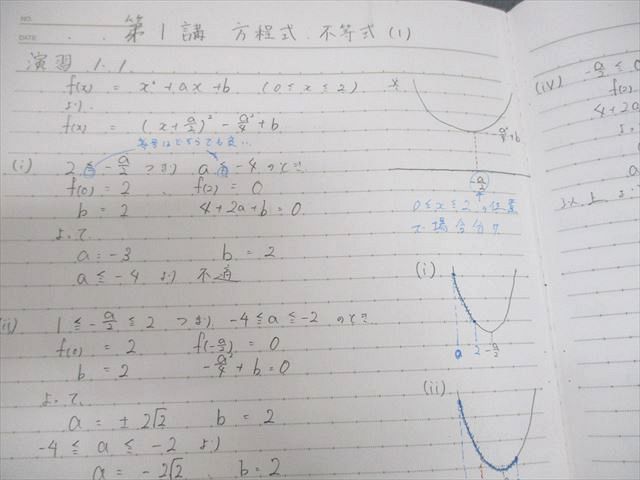 NO.
DATE
第1講 方程式・不等式(1)
演習 1.1
f(x) = x²+ax+b (0≤x≤2)
より
f(x) = (x+a/2)² - a²/4 + b
等号はどちらでも良
(i) 2 ≤ -a/2 つまり a ≤ -4 のとき
f(0) = 2 f(2) = 0
b = 2 4+2a+b=0
よって
a = -3 b = 2
a ≤ -4 より 不適
(ii) 1 ≤ -a/2 ≤ 2 つまり -4≤a≤-2 のとき
f(0) = 2 f(-a/2) = 0
b = 2 -a²/4 + b = 0
よって
a = ±2√2 b = 2
-4 ≤ a ≤ -2 より
a = -2√2 b = 2
-a²/4+b
-a/2
0≤x≤2の位置
で場合分け
(i)
2 -a/2
(ii)
(iv) -a/2 ≤ 0
f(2)
4+2a
以上よ